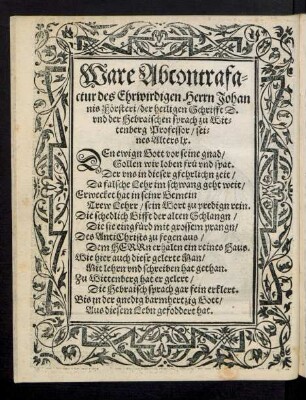 Ware Abcontrafa-
ctur des Ehrwirdigen Herrn Johan
nis Försteri/ der heiligen Schrifft D.
vnd der Hebraischen sprach zu Wit-
tenberg Professor/ sei-
nes Alters lx.
DEn ewign Gott vor seine gnad/
Sollen wir loben frü vnd spat.
Der vns in dieser gfehrlichn zeit/
Da falsche Lehr im schwang geht weit/
Erwecket hat in seiner Gemein
Trew Lehrer/ sein Wort zu predign rein.
Die schedlich Gifft der alten Schlangn/
Die sie eingfürd mit grossem prangn/
Des AntiChrists zu fegen aus/
Dem HERRN erhalten ein reines Haus.
Wie hier auch diese gelerte Man/
Mit lehrn vnd schreiben hat gethan.
Zu Wittenberg hat er gelert/
Die Hebraisch sprach gar fein erklert.
Bis jn der gnedig barmhertzig Gott/
Aus diesem Lebn gefoddert hat.